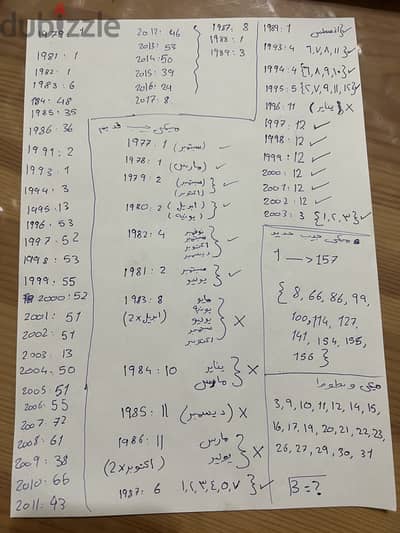 dubizzle
1979: 1
1981: 1
1982: 1
1983: 6
184: 48
1985: 35
1986: 36
1991: 2
1993: 1
1994: 3
1995: 13
1996: 53
1997: 52
1998: 53
1999: 55
2000: 52
2001: 51
2002: 51
2003: 13
2004: 50
2005: 51
2006: 55
2007: 72
2008: 61
2009: 38
2010: 66
2011: 43
2012: 46
2013: 53
2014: 50
2015: 39
2016: 24
2017: 8
1987: 8
1988: 1
1989: 3
ميكى ← قديم
1977: 1 (سبتمبر) ✓
1978: 1 (مارس) ✓
1979: 2 (سبتمبر) (اكتوبر) } ✓
1980: 2 (ابريل) (يونيه) } ✓
1982: 4 نوفمبر سبتمبر اكتوبر ديسمبر } ✓
1981: 2 سبتمبر يوليو } ✓
1983: 8 مايو يونيه يوليو (ابريل x2) سبتمبر اكتوبر } X
1984: 10 يناير مارس } X
1985: 11 (ديسمبر) X
1986: 11 مارس يوليو (اكتوبر x2) } X
1987: 6 ١,٢,٣,٤,٥,٧ } ✓
1989: 1 اغسطس ✓
1993: 4 ٦,٧,٨,١١ ✓
1994: 4 {٦,٨,٩,١٠} ✓
1995: 5 {٢,٧,٩,١١,١٥} ✓
1996: 11 (يناير) X
1997: 12 ✓
1998: 12 ✓
1999: 12 ✓
2000: 12 ✓
2001: 12 ✓
2002: 12 ✓
2003: 3 {١,٢,٣} ✓
ميكى جيب جديد
1 → 157
{ 8, 66, 86, 99,
100, 114, 127,
141, 154, 155,
156 }
ميكى وبطوط
3, 9, 10, 11, 12, 14, 15,
16, 17, 19, 20, 21, 22, 23,
26, 27, 29, 30, 31
B = ?